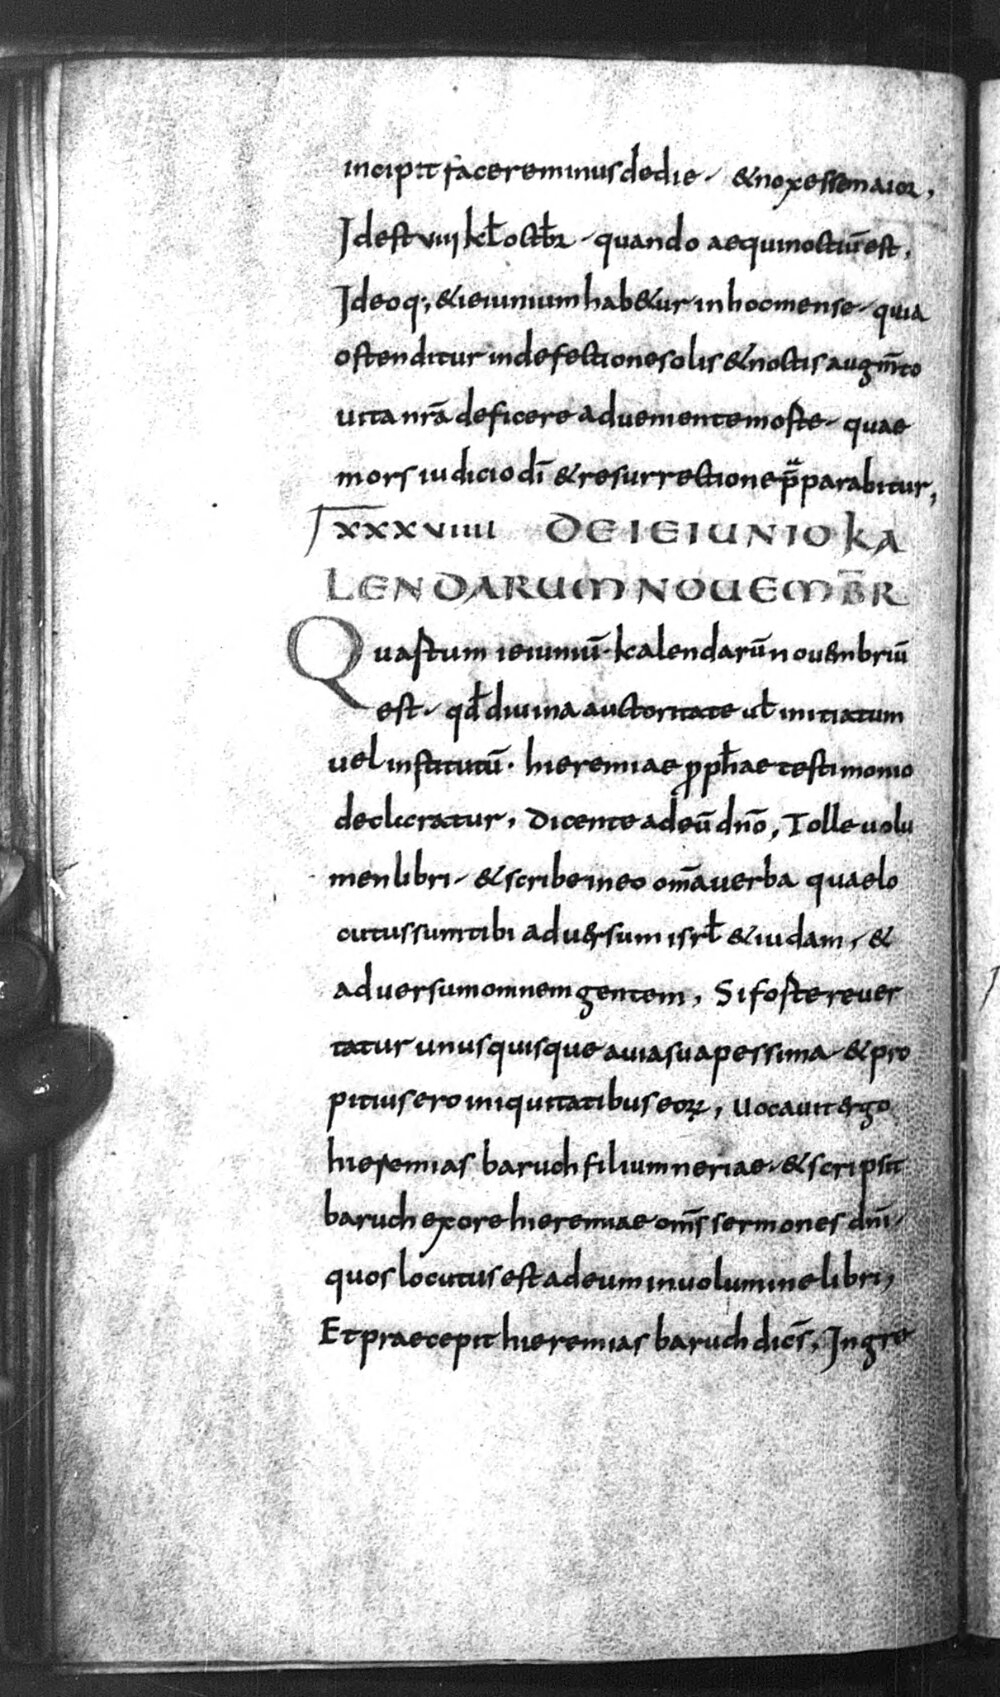 incipit facere minus de die. & nox esse maior,
Id est viiij kl̄ octb̄r. quando aequinoctiū est,
Ideoq; & ieiunium hab&ur in hoc mense. quia
ostenditur in defectione solis & noctis augm̄to
uita nr̄a deficere adueniente morte. quae
mors iudicio dī & resurrectione p̄parabitur,
xxxviiii DE IEIUNIO KA
LENDARUM NOUEMB̄R
Quartum ieiuniū. kalendarū nouembriū
est. qd̄ diuina auctoritate ul̄ initiatum
uel institutū. hieremiae ꝓph̄ae testimonio
declaratur, dicente ad eū dn̄o, Tolle uolu
men libri. & scribe in eo om̄a uerba quae lo
cutus sum tibi aduersum isrl̄ & iudam, &
aduersum omnem gentem, Si forte reuer
tatur unusquisque a uia sua pessima. & pro
pitius ero iniquitatibus eoꝝ, Uocauit ergo
hieremias baruch filium neriae. & scripsit
baruch ex ore hieremiae om̄s sermones dn̄i.
quos locutus est ad eum in uolumine libri,
Et praecepit hieremias baruch dicēs, Ingre